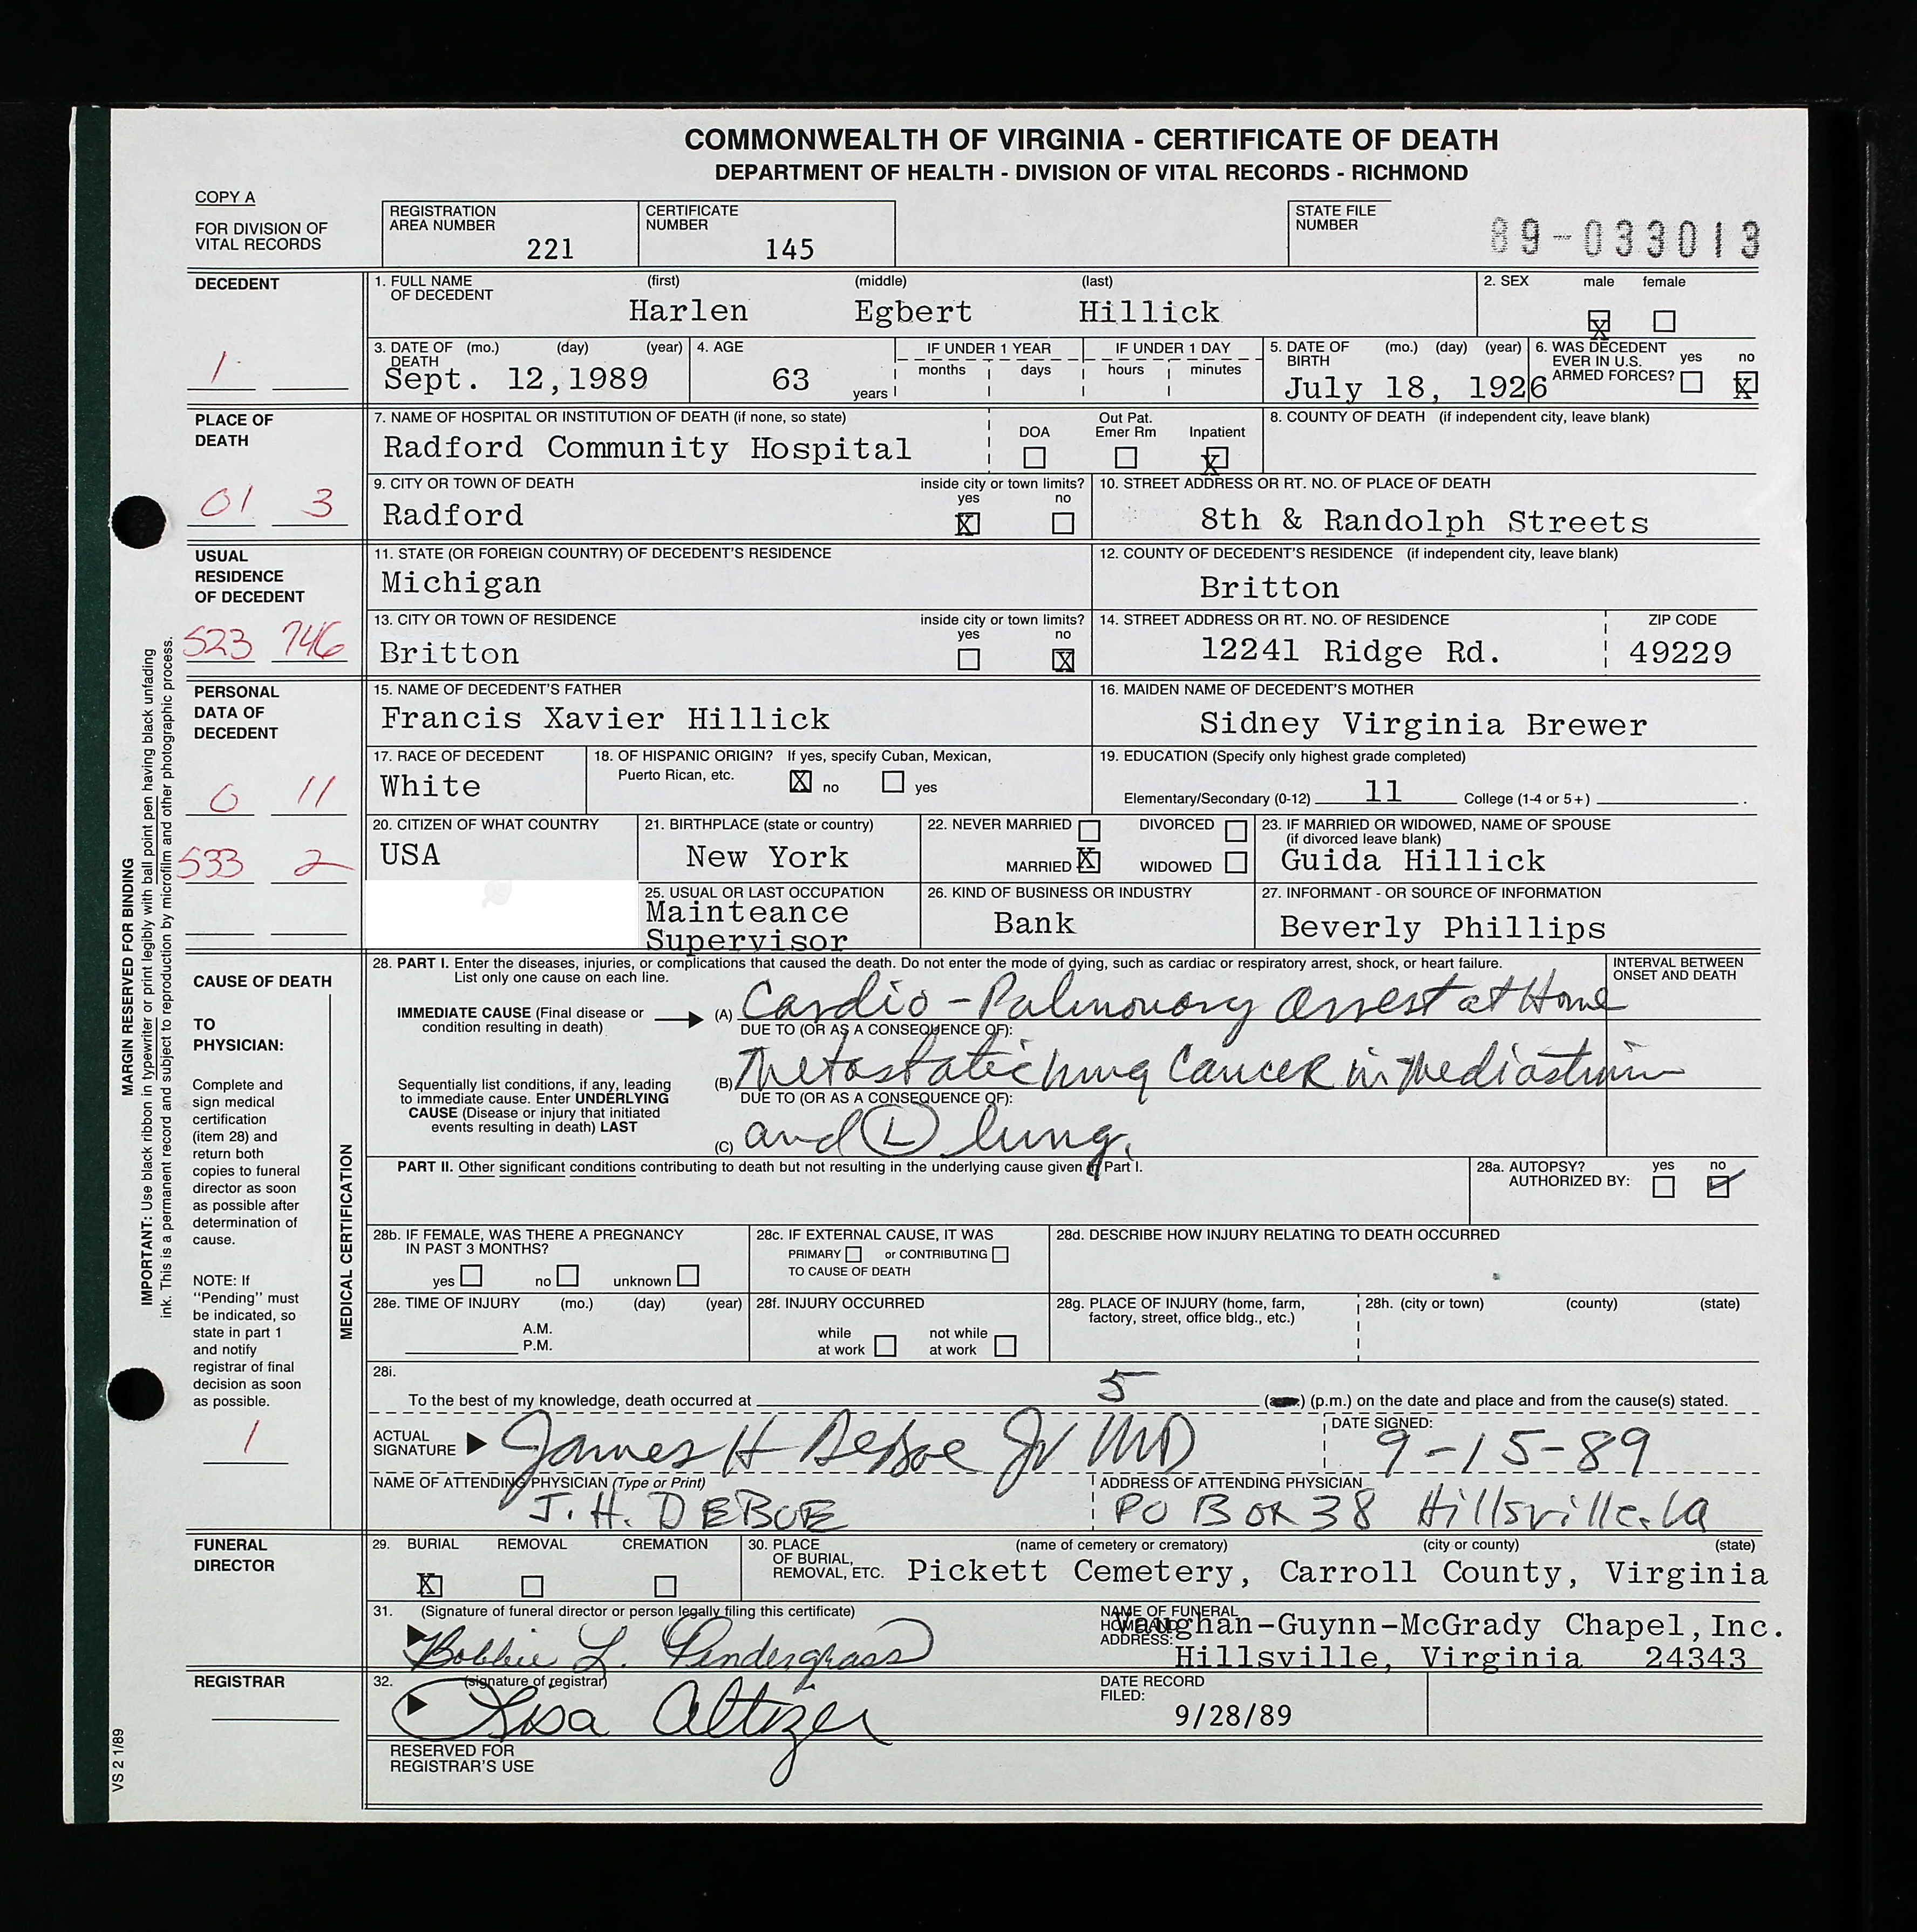 COMMONWEALTH OF VIRGINIA - CERTIFICATE OF DEATH
DEPARTMENT OF HEALTH - DIVISION OF VITAL RECORDS - RICHMOND
COPY A
FOR DIVISION OF
VITAL RECORDS
REGISTRATION
AREA NUMBER
221
CERTIFICATE
NUMBER
145
STATE FILE
NUMBER
89-033013
DECEDENT
1. FULL NAME (first) (middle) (last)
OF DECEDENT
Harlen Egbert Hillick
2. SEX male female
X
1
3. DATE OF (mo.) (day) (year)
DEATH
Sept. 12,1989
4. AGE
63
years
IF UNDER 1 YEAR
months days
IF UNDER 1 DAY
hours minutes
5. DATE OF (mo.) (day) (year)
BIRTH
July 18, 1926
6. WAS DECEDENT
EVER IN U.S. yes no
ARMED FORCES?
X
PLACE OF
DEATH
01 3
7. NAME OF HOSPITAL OR INSTITUTION OF DEATH (if none, so state)
Radford Community Hospital
DOA
Out Pat.
Emer Rm
Inpatient
X
8. COUNTY OF DEATH (if independent city, leave blank)
9. CITY OR TOWN OF DEATH inside city or town limits?
yes no
Radford X
10. STREET ADDRESS OR RT. NO. OF PLACE OF DEATH
8th & Randolph Streets
USUAL
RESIDENCE
OF DECEDENT
523 746
11. STATE (OR FOREIGN COUNTRY) OF DECEDENT'S RESIDENCE
Michigan
12. COUNTY OF DECEDENT'S RESIDENCE (if independent city, leave blank)
Britton
13. CITY OR TOWN OF RESIDENCE inside city or town limits?
yes no
Britton X
14. STREET ADDRESS OR RT. NO. OF RESIDENCE
12241 Ridge Rd.
ZIP CODE
49229
PERSONAL
DATA OF
DECEDENT
0 11
533 2
15. NAME OF DECEDENT'S FATHER
Francis Xavier Hillick
16. MAIDEN NAME OF DECEDENT'S MOTHER
Sidney Virginia Brewer
17. RACE OF DECEDENT
White
18. OF HISPANIC ORIGIN? If yes, specify Cuban, Mexican,
Puerto Rican, etc.
X no yes
19. EDUCATION (Specify only highest grade completed)
Elementary/Secondary (0-12) 11 College (1-4 or 5+)
20. CITIZEN OF WHAT COUNTRY
USA
21. BIRTHPLACE (state or country)
New York
22. NEVER MARRIED DIVORCED
MARRIED X WIDOWED
23. IF MARRIED OR WIDOWED, NAME OF SPOUSE
(if divorced leave blank)
Guida Hillick
25. USUAL OR LAST OCCUPATION
Mainteance
Supervisor
26. KIND OF BUSINESS OR INDUSTRY
Bank
27. INFORMANT - OR SOURCE OF INFORMATION
Beverly Phillips
CAUSE OF DEATH
TO
PHYSICIAN:
Complete and
sign medical
certification
(item 28) and
return both
copies to funeral
director as soon
as possible after
determination of
cause.
NOTE: If
"Pending" must
be indicated, so
state in part 1
and notify
registrar of final
decision as soon
as possible.
1
MEDICAL CERTIFICATION
28. PART I. Enter the diseases, injuries, or complications that caused the death. Do not enter the mode of dying, such as cardiac or respiratory arrest, shock, or heart failure.
List only one cause on each line.
INTERVAL BETWEEN
ONSET AND DEATH
IMMEDIATE CAUSE (Final disease or
condition resulting in death)
(A) Cardio-Pulmonary arrest at Home
DUE TO (OR AS A CONSEQUENCE OF):
Sequentially list conditions, if any, leading
to immediate cause. Enter UNDERLYING
CAUSE (Disease or injury that initiated
events resulting in death) LAST
(B) Metastatic lung Cancer in Mediastinum
DUE TO (OR AS A CONSEQUENCE OF):
(C) and L lung.
PART II. Other significant conditions contributing to death but not resulting in the underlying cause given in Part I.
28a. AUTOPSY? yes no
AUTHORIZED BY:
28b. IF FEMALE, WAS THERE A PREGNANCY
IN PAST 3 MONTHS?
yes no unknown
28c. IF EXTERNAL CAUSE, IT WAS
PRIMARY or CONTRIBUTING
TO CAUSE OF DEATH
28d. DESCRIBE HOW INJURY RELATING TO DEATH OCCURRED
28e. TIME OF INJURY (mo.) (day) (year)
A.M.
P.M.
28f. INJURY OCCURRED
while not while
at work at work
28g. PLACE OF INJURY (home, farm,
factory, street, office bldg., etc.)
28h. (city or town) (county) (state)
28i.
To the best of my knowledge, death occurred at 5 (p.m.) on the date and place and from the cause(s) stated.
ACTUAL
SIGNATURE
James H DeBoe Jr MD
DATE SIGNED:
9-15-89
NAME OF ATTENDING PHYSICIAN (Type or Print)
J. H. DEBOE
ADDRESS OF ATTENDING PHYSICIAN
PO BOX 38 Hillsville, Va
FUNERAL
DIRECTOR
29. BURIAL REMOVAL CREMATION
X
30. PLACE (name of cemetery or crematory) (city or county) (state)
OF BURIAL,
REMOVAL, ETC.
Pickett Cemetery, Carroll County, Virginia
31. (Signature of funeral director or person legally filing this certificate)
Bobbie L. Pendergrass
NAME OF FUNERAL
HOME AND
ADDRESS:
Vaughan-Guynn-McGrady Chapel,Inc.
Hillsville, Virginia 24343
REGISTRAR
32. (signature of registrar)
Lisa Altizer
DATE RECORD
FILED:
9/28/89
RESERVED FOR
REGISTRAR'S USE
MARGIN RESERVED FOR BINDING
IMPORTANT: Use black ribbon in typewriter or print legibly with ball point pen having black unfading
ink. This is a permanent record and subject to reproduction by microfilm and other photographic process.
VS 2 1/89